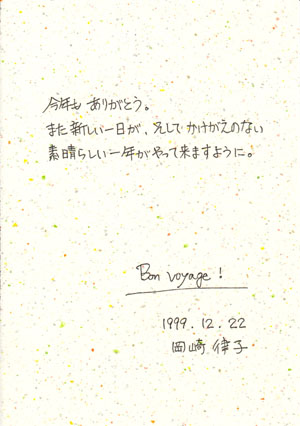 今年も ありがとう。
また新しい一日が、そして かけがえのない
素晴らしい一年がやって来ますように。
Bon voyage!
1999.12.22
岡崎 律子